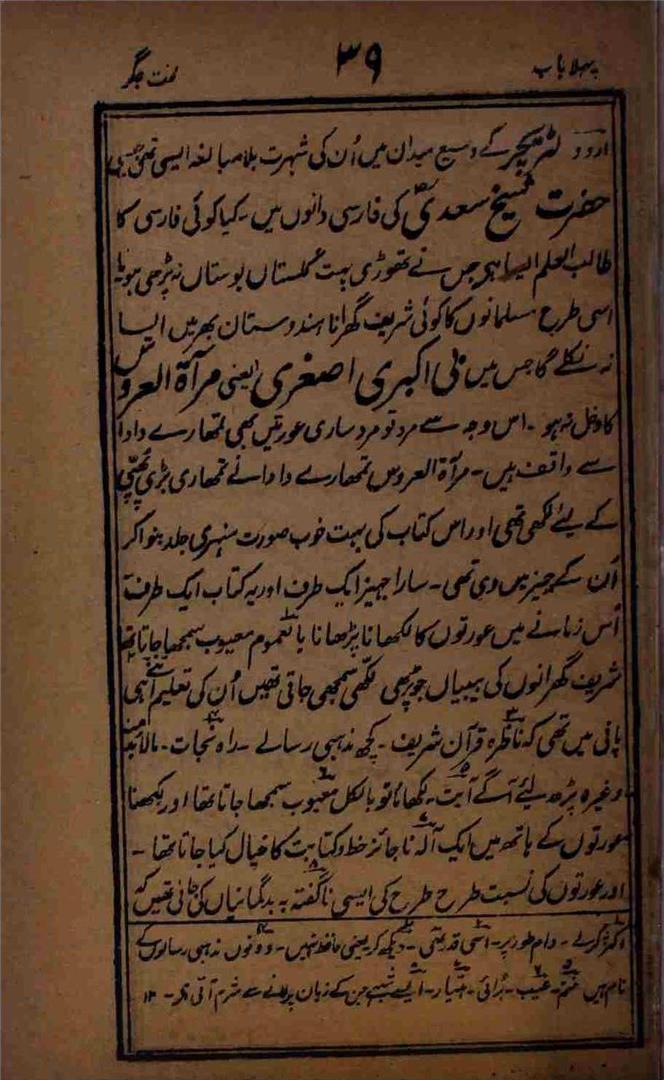 پہلا باب ۳۹ لخت جگر
اردو لٹریچر کے وسیع میدان میں اُن کی شہرت بلا مبالغہ ایسی تھی جیسی
حضرت شیخ سعدیؒ کی فارسی دانوں میں ۔ کیا کوئی فارسی کا
طالب العلم ایسا ہی جس نے تھوڑی بہت گلستاں بوستاں نہ پڑھی ہو یا
اسی طرح مسلمانوں کا کوئی شریف گھرانا ہندوستان بھر میں ایسا
نہ نکلے گا جس میں بی اکبری اصغری یعنی مرآۃ العروس
کا دخل نہ ہو ۔ اس وجہ سے مرد تو مرد ساری عورتیں بھی تمھارے دادا
سے واقف ہیں ۔ مرآۃ العروس تمھارے دادا نے تمھاری بڑی پھپی
کے لیئے لکھی تھی اور اس کتاب کی بہت خوب صورت سنہری جلد بنوا کر
اُن کے جہیز میں دی تھی ۔ سارا جہیز ایک طرف اور یہ کتاب ایک طرف ۔
اُس زمانے میں عورتوں کا لکھانا پڑھانا بالعموم معیوب سمجھا جاتا تھا
شریف گھرانوں کی بیبیاں جو پڑھی لکھی سمجھی جاتی تھیں اُن کی تعلیم اتنے ہی
پانی میں تھی کہ ناظرہ قرآن شریف ۔ کچھ مذہبی رسالے ۔ راہ نجات ۔ مالابد منہ
وغیرہ پڑھ لیئے آگے آیت ۔ لکھانا تو بالکل معیوب سمجھا جاتا تھا اور لکھنا
عورتوں کے ہاتھ میں ایک آلۂ ناجائز خط و کتابت کا خیال کیا جاتا تھا ۔
اور عورتوں کی نسبت طرح طرح کی ایسی ناگفتہ بہ بدگمانیاں کی جاتی تھیں کہ
۔ عام طور پر ۔ اتنی قدر تھی ۔ دیکھ کر یعنی حافظ نہیں ۔ دونوں مذہبی رسالوں کے
نام ہیں ختم ۔ عیب ۔ بُرائی ۔ ہتیار ۔ ایسے شبہے جن کے زبان پر لانے سے شرم آتی ہی ۔ ۱۲